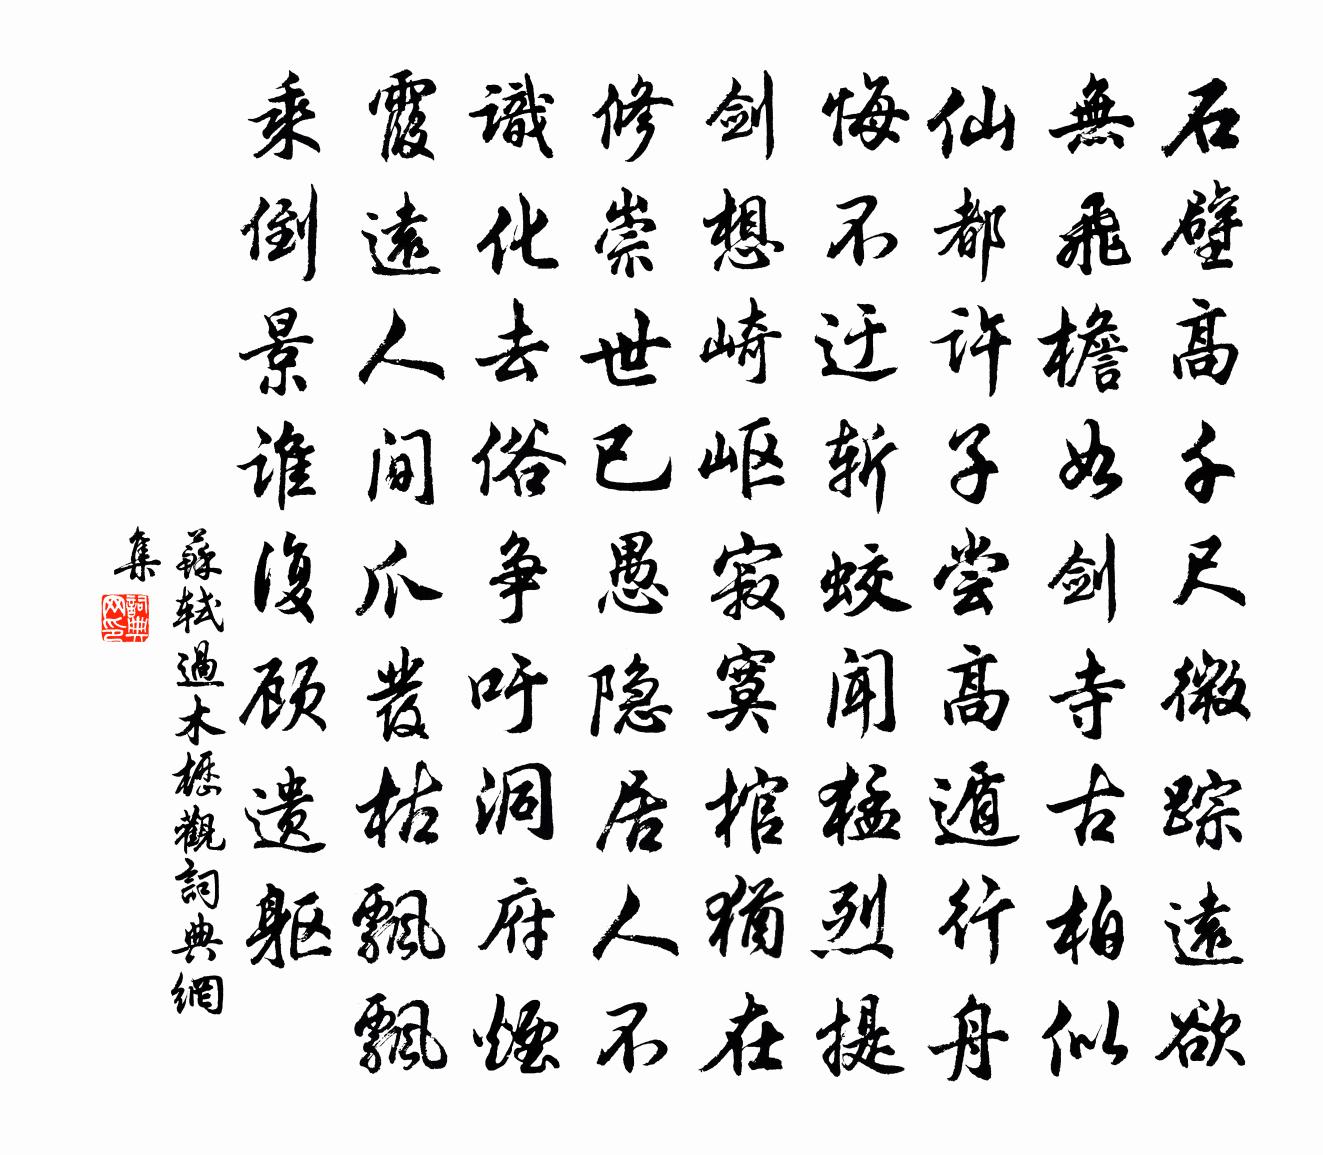 石壁高千尺微踪遠欲
無飛檐如劍寺古柏似
仙都許子嘗高遁行舟
悔不迂斬蛟聞猛烈提
劍想崎岖寂寞棺猶在
修崇世已愚隐居人不
識化去俗争吁洞府煙
霞遠人间爪髮枯飄飄
乘倒景谁復顾遗躯
蘇軾過木櫪觀詞典網
集
詞典网印